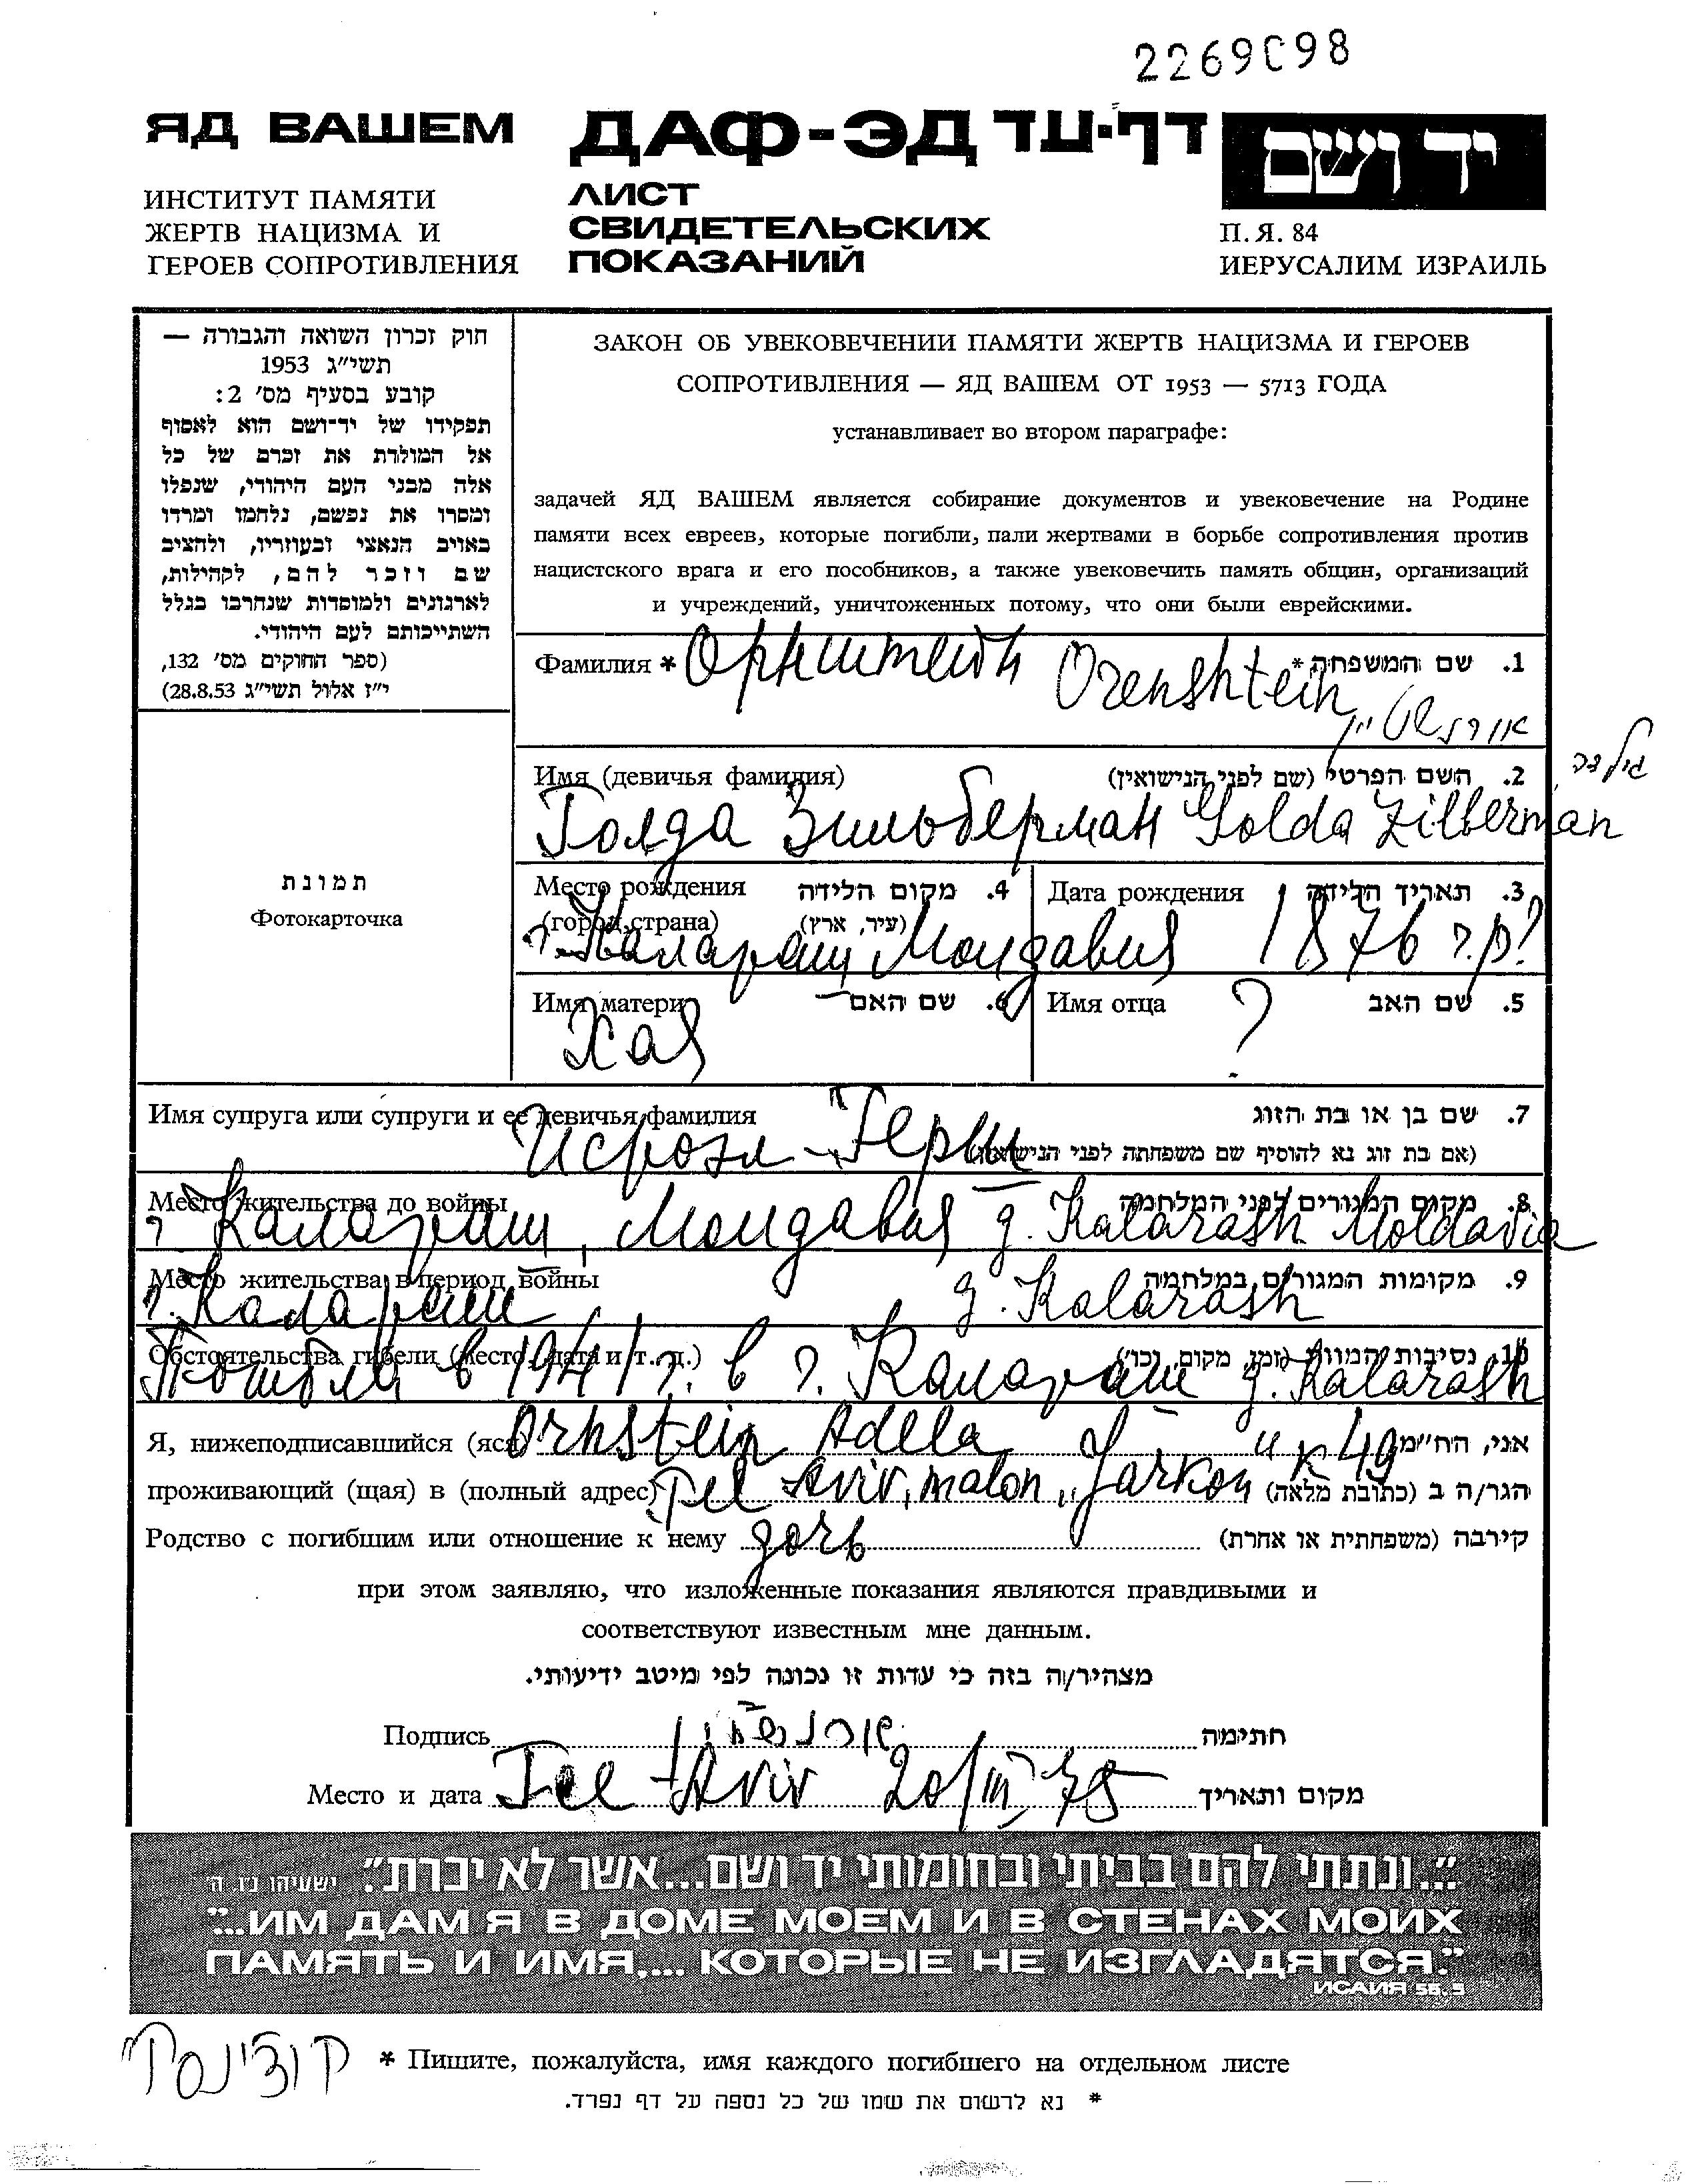 2269098
ЯД ВАШЕМ
ДАФ-ЭД דף-עד
יד ושם
ИНСТИТУТ ПАМЯТИ
ЖЕРТВ НАЦИЗМА И
ГЕРОЕВ СОПРОТИВЛЕНИЯ
ЛИСТ
СВИДЕТЕЛЬСКИХ
ПОКАЗАНИЙ
П. Я. 84
ИЕРУСАЛИМ ИЗРАИЛЬ
חוק זכרון השואה והגבורה —
תשי״ג 1953
קובע בסעיף מס׳ 2:
תפקידו של יד־ושם הוא לאסוף
אל המולדת את זכרם של כל
אלה מבני העם היהודי, שנפלו
ומסרו את נפשם, נלחמו ומרדו
באויב הנאצי ובעוזריו, ולהציב
שם וזכר להם, לקהילות,
לארגונים ולמוסדות שנחרבו בגלל
השתייכותם לעם היהודי.
(ספר החוקים מס׳ 132,
י״ז אלול תשי״ג 28.8.53)
ЗАКОН ОБ УВЕКОВЕЧЕНИИ ПАМЯТИ ЖЕРТВ НАЦИЗМА И ГЕРОЕВ
СОПРОТИВЛЕНИЯ — ЯД ВАШЕМ ОТ 1953 — 5713 ГОДА
устанавливает во втором параграфе:
задачей ЯД ВАШЕМ является собирание документов и увековечение на Родине
памяти всех евреев, которые погибли, пали жертвами в борьбе сопротивления против
нацистского врага и его пособников, а также увековечить память общин, организаций
и учреждений, уничтоженных потому, что они были еврейскими.
Фамилия * Орнштейн Orenshtein 1. שם המשפחה*
אורנשטיין
Имя (девичья фамилия) 2. השם הפרטי (שם לפני הנישואין)
גולדה
Голда Зильберман Golda Zilberman
Место рождения 4. מקום הלידה
(город, страна) (עיר, ארץ)
г. Калараш, Молдавия
Дата рождения 3. תאריך הלידה
1876 г.р?
תמונת
Фотокарточка
Имя матери 6. שם האם
Хая
Имя отца ? 5. שם האב
Имя супруга или супруги и ее девичья фамилия 7. שם בן או בת הזוג
(אם בת זוג נא להוסיף שם משפחתה לפני הנישואין)
Исроэл-Герш
Место жительства до войны 8. מקום המגורים לפני המלחמה
г Калараш, Молдавия g. Kalarash Moldavia
Место жительства в период войны 9. מקומות המגורים במלחמה
г. Калараш g. Kalarash
Обстоятельства гибели (место, дата и т. д.) 10. נסיבות המוות (זמן, מקום, וכו׳)
Погибла в 1941 г. в г. Калараше g. Kalarash
Я, нижеподписавшийся (яся) Ornstein Adela אני, הח״מ
проживающий (щая) в (полный адрес) Tel Aviv, malon „Jarkon" к 49 הגר/ה ב (כתובת מלאה)
Родство с погибшим или отношение к нему дочь קירבה (משפחתית או אחרת)
при этом заявляю, что изложенные показания являются правдивыми и
соответствуют известным мне данным.
מצהיר/ה בזה כי עדות זו נכונה לפי מיטב ידיעותי.
Подпись חתימה
Место и дата Tel-Aviv 20/III 75 מקום ותאריך
"...ונתתי להם בביתי ובחומותי יד ושם...אשר לא יכרת". ישעיהו נ״ו, ה׳
"...ИМ ДАМ Я В ДОМЕ МОЕМ И В СТЕНАХ МОИХ
ПАМЯТЬ И ИМЯ,... КОТОРЫЕ НЕ ИЗГЛАДЯТСЯ."
ИСАИЯ 56. 5
* Пишите, пожалуйста, имя каждого погибшего на отдельном листе
* נא לרשום את שמו של כל נספה על דף נפרד.